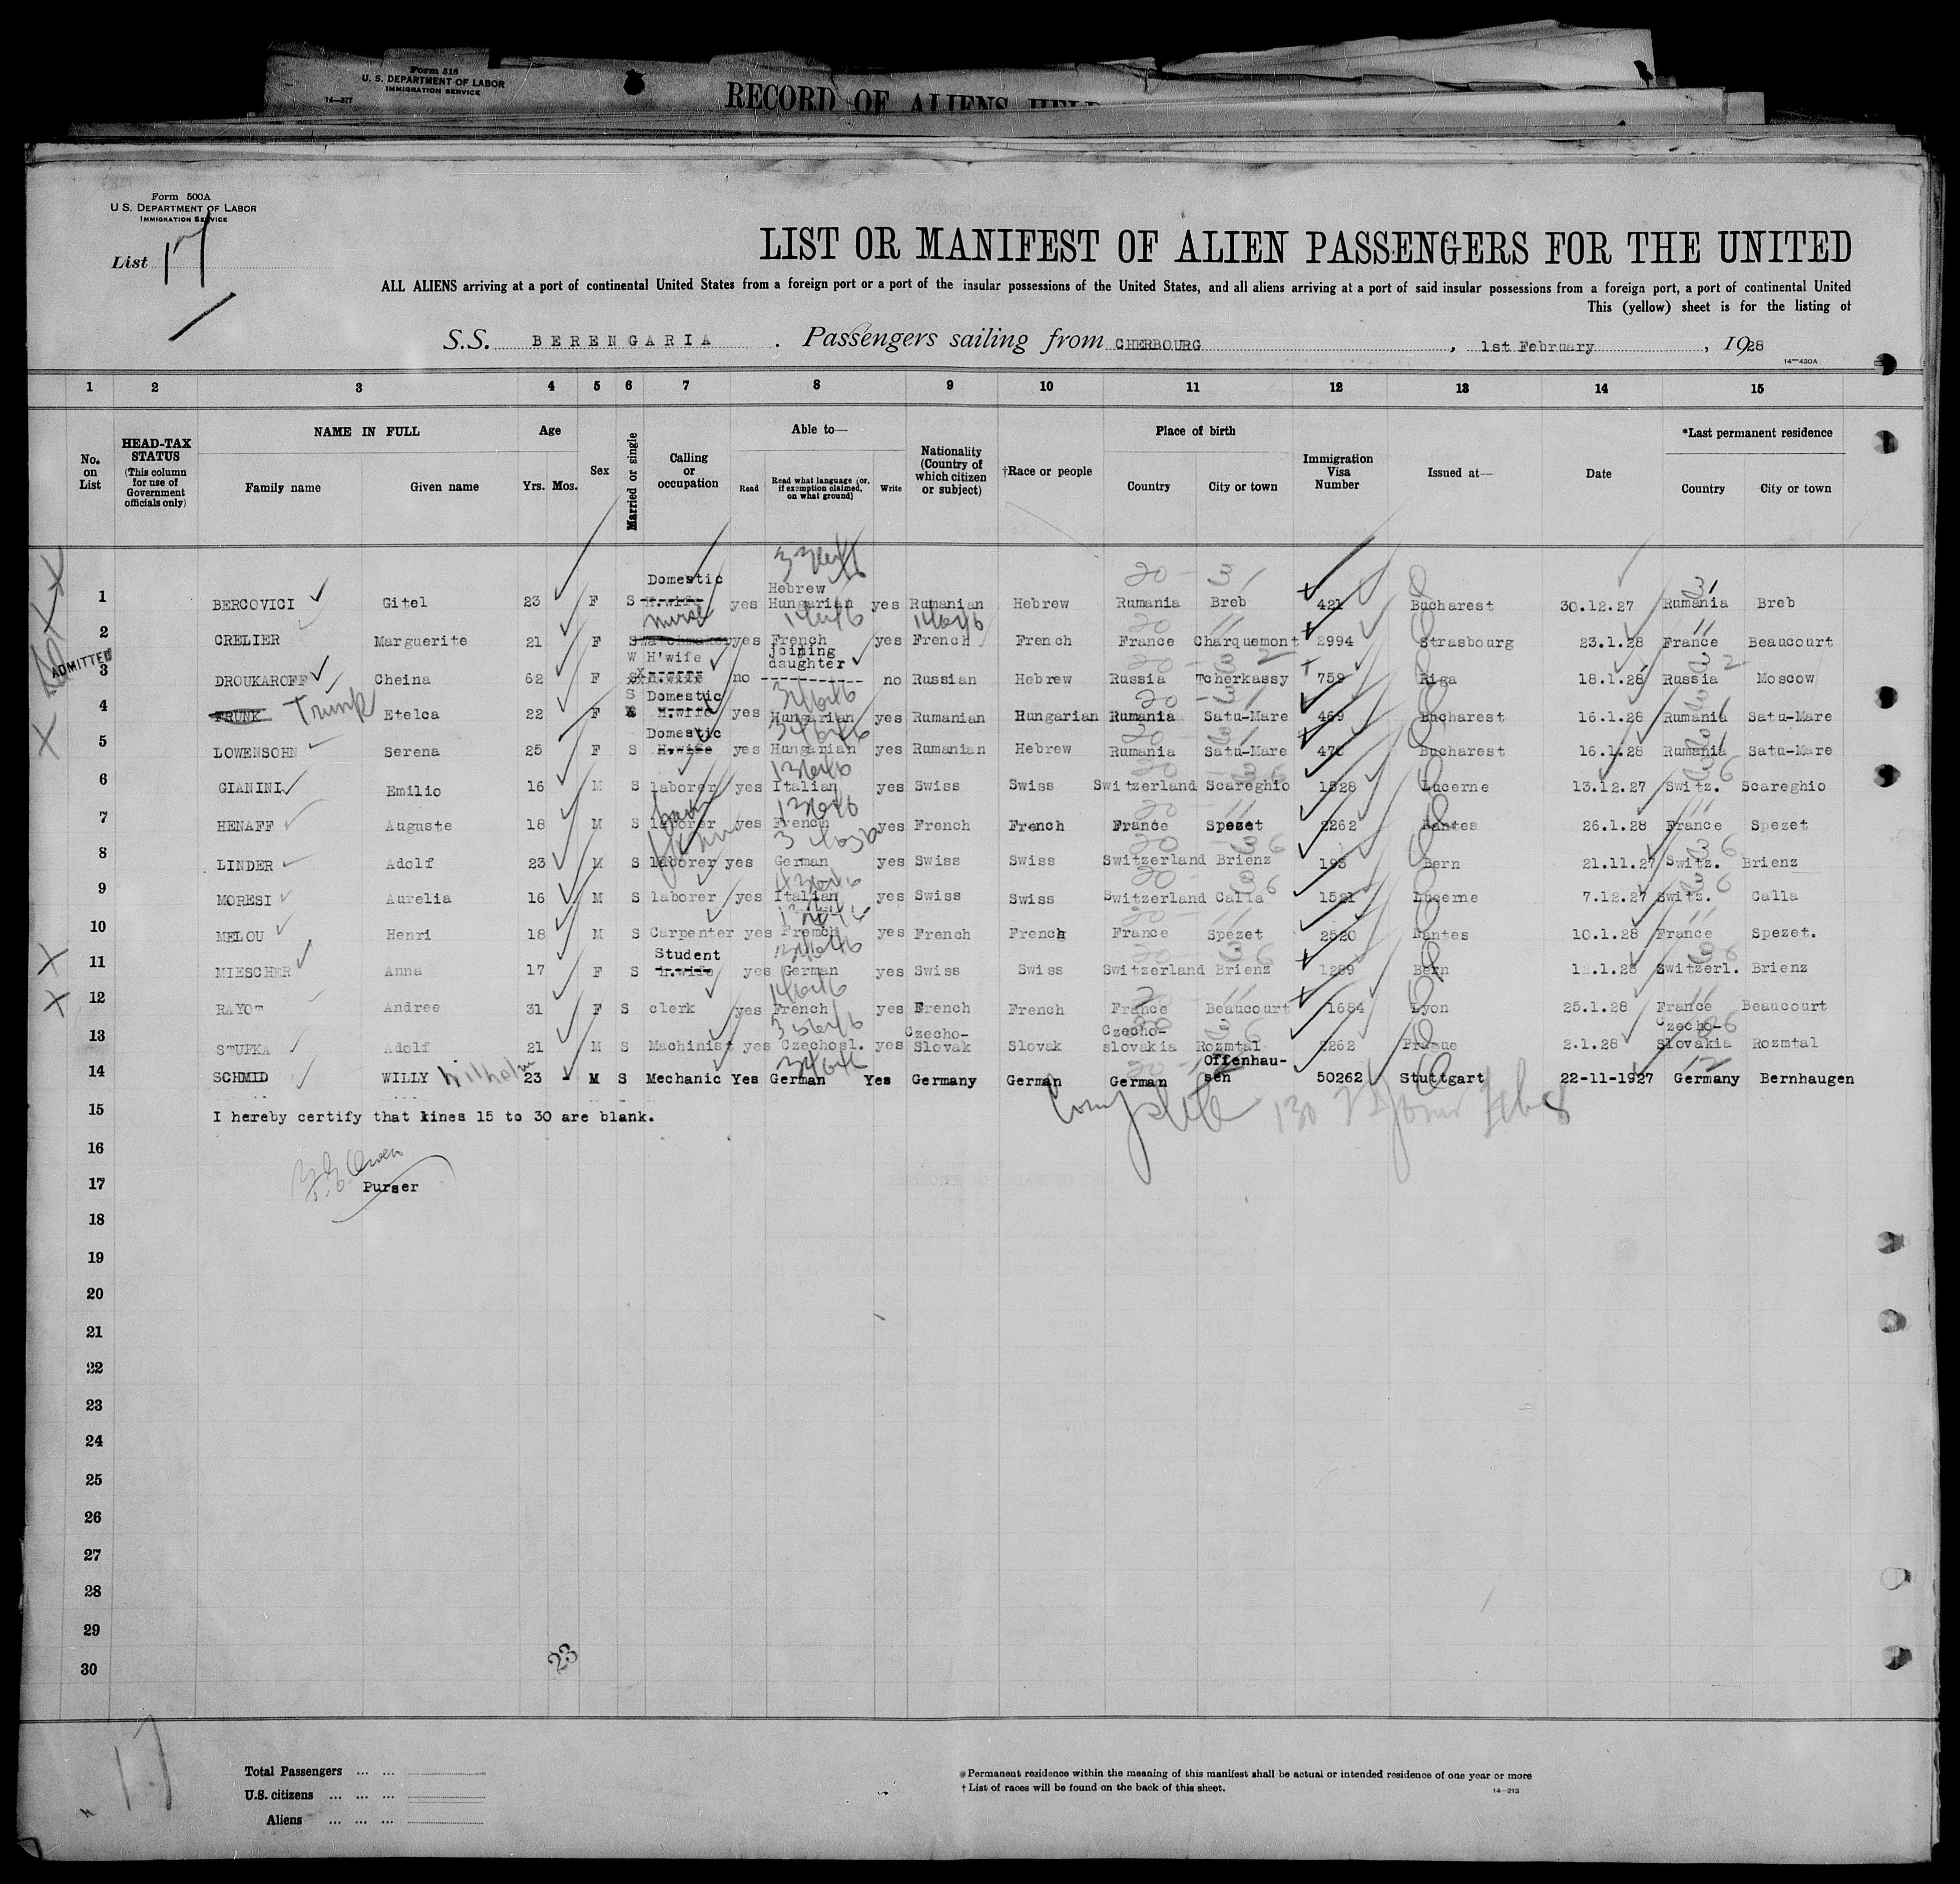 Form 518
U. S. DEPARTMENT OF LABOR
IMMIGRATION SERVICE
14—377
RECORD OF ALIENS HELD
Form 500A
U. S. DEPARTMENT OF LABOR
IMMIGRATION SERVICE
List 17
LIST OR MANIFEST OF ALIEN PASSENGERS FOR THE UNITED
ALL ALIENS arriving at a port of continental United States from a foreign port or a port of the insular possessions of the United States, and all aliens arriving at a port of said insular possessions from a foreign port, a port of continental United
This (yellow) sheet is for the listing of
S.S. BERENGARIA . Passengers sailing from CHERBOURG , 1st February , 1928
14—430A
1 2 3 4 5 6 7 8 9 10 11 12 13 14 15
No. on List
HEAD-TAX STATUS (This column for use of Government officials only)
NAME IN FULL
Family name Given name
Age
Yrs. Mos.
Sex
Married or single
Calling or occupation
Able to—
Read Read what language (or, if exemption claimed, on what ground) Write
Nationality (Country of which citizen or subject)
†Race or people
Place of birth
Country City or town
Immigration Visa Number
Issued at—
Date
*Last permanent residence
Country City or town
1 BERCOVICI Gitel 23 F S Domestic H.wife yes Hebrew Hungarian yes Rumanian Hebrew Rumania Breb 421 Bucharest 30.12.27 Rumania Breb
2 CRELIER Marguerite 21 F S nurse Watchmaker yes French yes French French France Charquemont 2994 Strasbourg 23.1.28 France Beaucourt
ADMITTED
3 DROUKAROFF Cheina 62 F W H'wife no joining daughter no Russian Hebrew Russia Tcherkassy 759 Riga 18.1.28 Russia Moscow
4 TRUNK Trunk Etelca 22 F S Domestic H.wife yes Hungarian yes Rumanian Hungarian Rumania Satu-Mare 469 Bucharest 16.1.28 Rumania Satu-Mare
5 LOWENSOHN Serena 25 F S Domestic H.wife yes Hungarian yes Rumanian Hebrew Rumania Satu-Mare 470 Bucharest 16.1.28 Rumania Satu-Mare
6 GIANINI Emilio 16 M S laborer yes Italian yes Swiss Swiss Switzerland Scareghio 1528 Lucerne 13.12.27 Switz. Scareghio
7 HENAFF Auguste 18 M S laborer yes French yes French French France Spezet 2262 Nantes 26.1.28 France Spezet
8 LINDER Adolf 23 M S laborer yes German yes Swiss Swiss Switzerland Brienz 193 Bern 21.11.27 Switz. Brienz
9 MORESI Aurelia 16 M S laborer yes Italian yes Swiss Swiss Switzerland Calla 1521 Lucerne 7.12.27 Switz. Calla
10 MELOU Henri 18 M S Carpenter yes French yes French French France Spezet 2520 Nantes 10.1.28 France Spezet.
11 MIESCHER Anna 17 F S Student H.wife yes German yes Swiss Swiss Switzerland Brienz 1289 Bern 12.1.28 Switzerl. Brienz
12 RAYOT Andree 31 F S clerk yes French yes French French France Beaucourt 1684 Lyon 25.1.28 France Beaucourt
13 STUPKA Adolf 21 M S Machinist yes Czechosl. yes Czecho-Slovak Slovak Czecho-slovakia Rozmtal 2262 Prague 2.1.28 Czecho-Slovakia Rozmtal
14 SCHMID WILLY Wilhelm 23 - M S Mechanic Yes German Yes Germany German German Offenhau-sen 50262 Stuttgart 22-11-1927 Germany Bernhaugen
15 I hereby certify that lines 15 to 30 are blank.
Complete
16
17 Purser
18
19
20
21
22
23
24
25
26
27
28
29
30
23
17
Total Passengers ... ...
U.S. citizens ... ... ...
Aliens ... ... ...
*Permanent residence within the meaning of this manifest shall be actual or intended residence of one year or more
†List of races will be found on the back of this sheet.
14—213